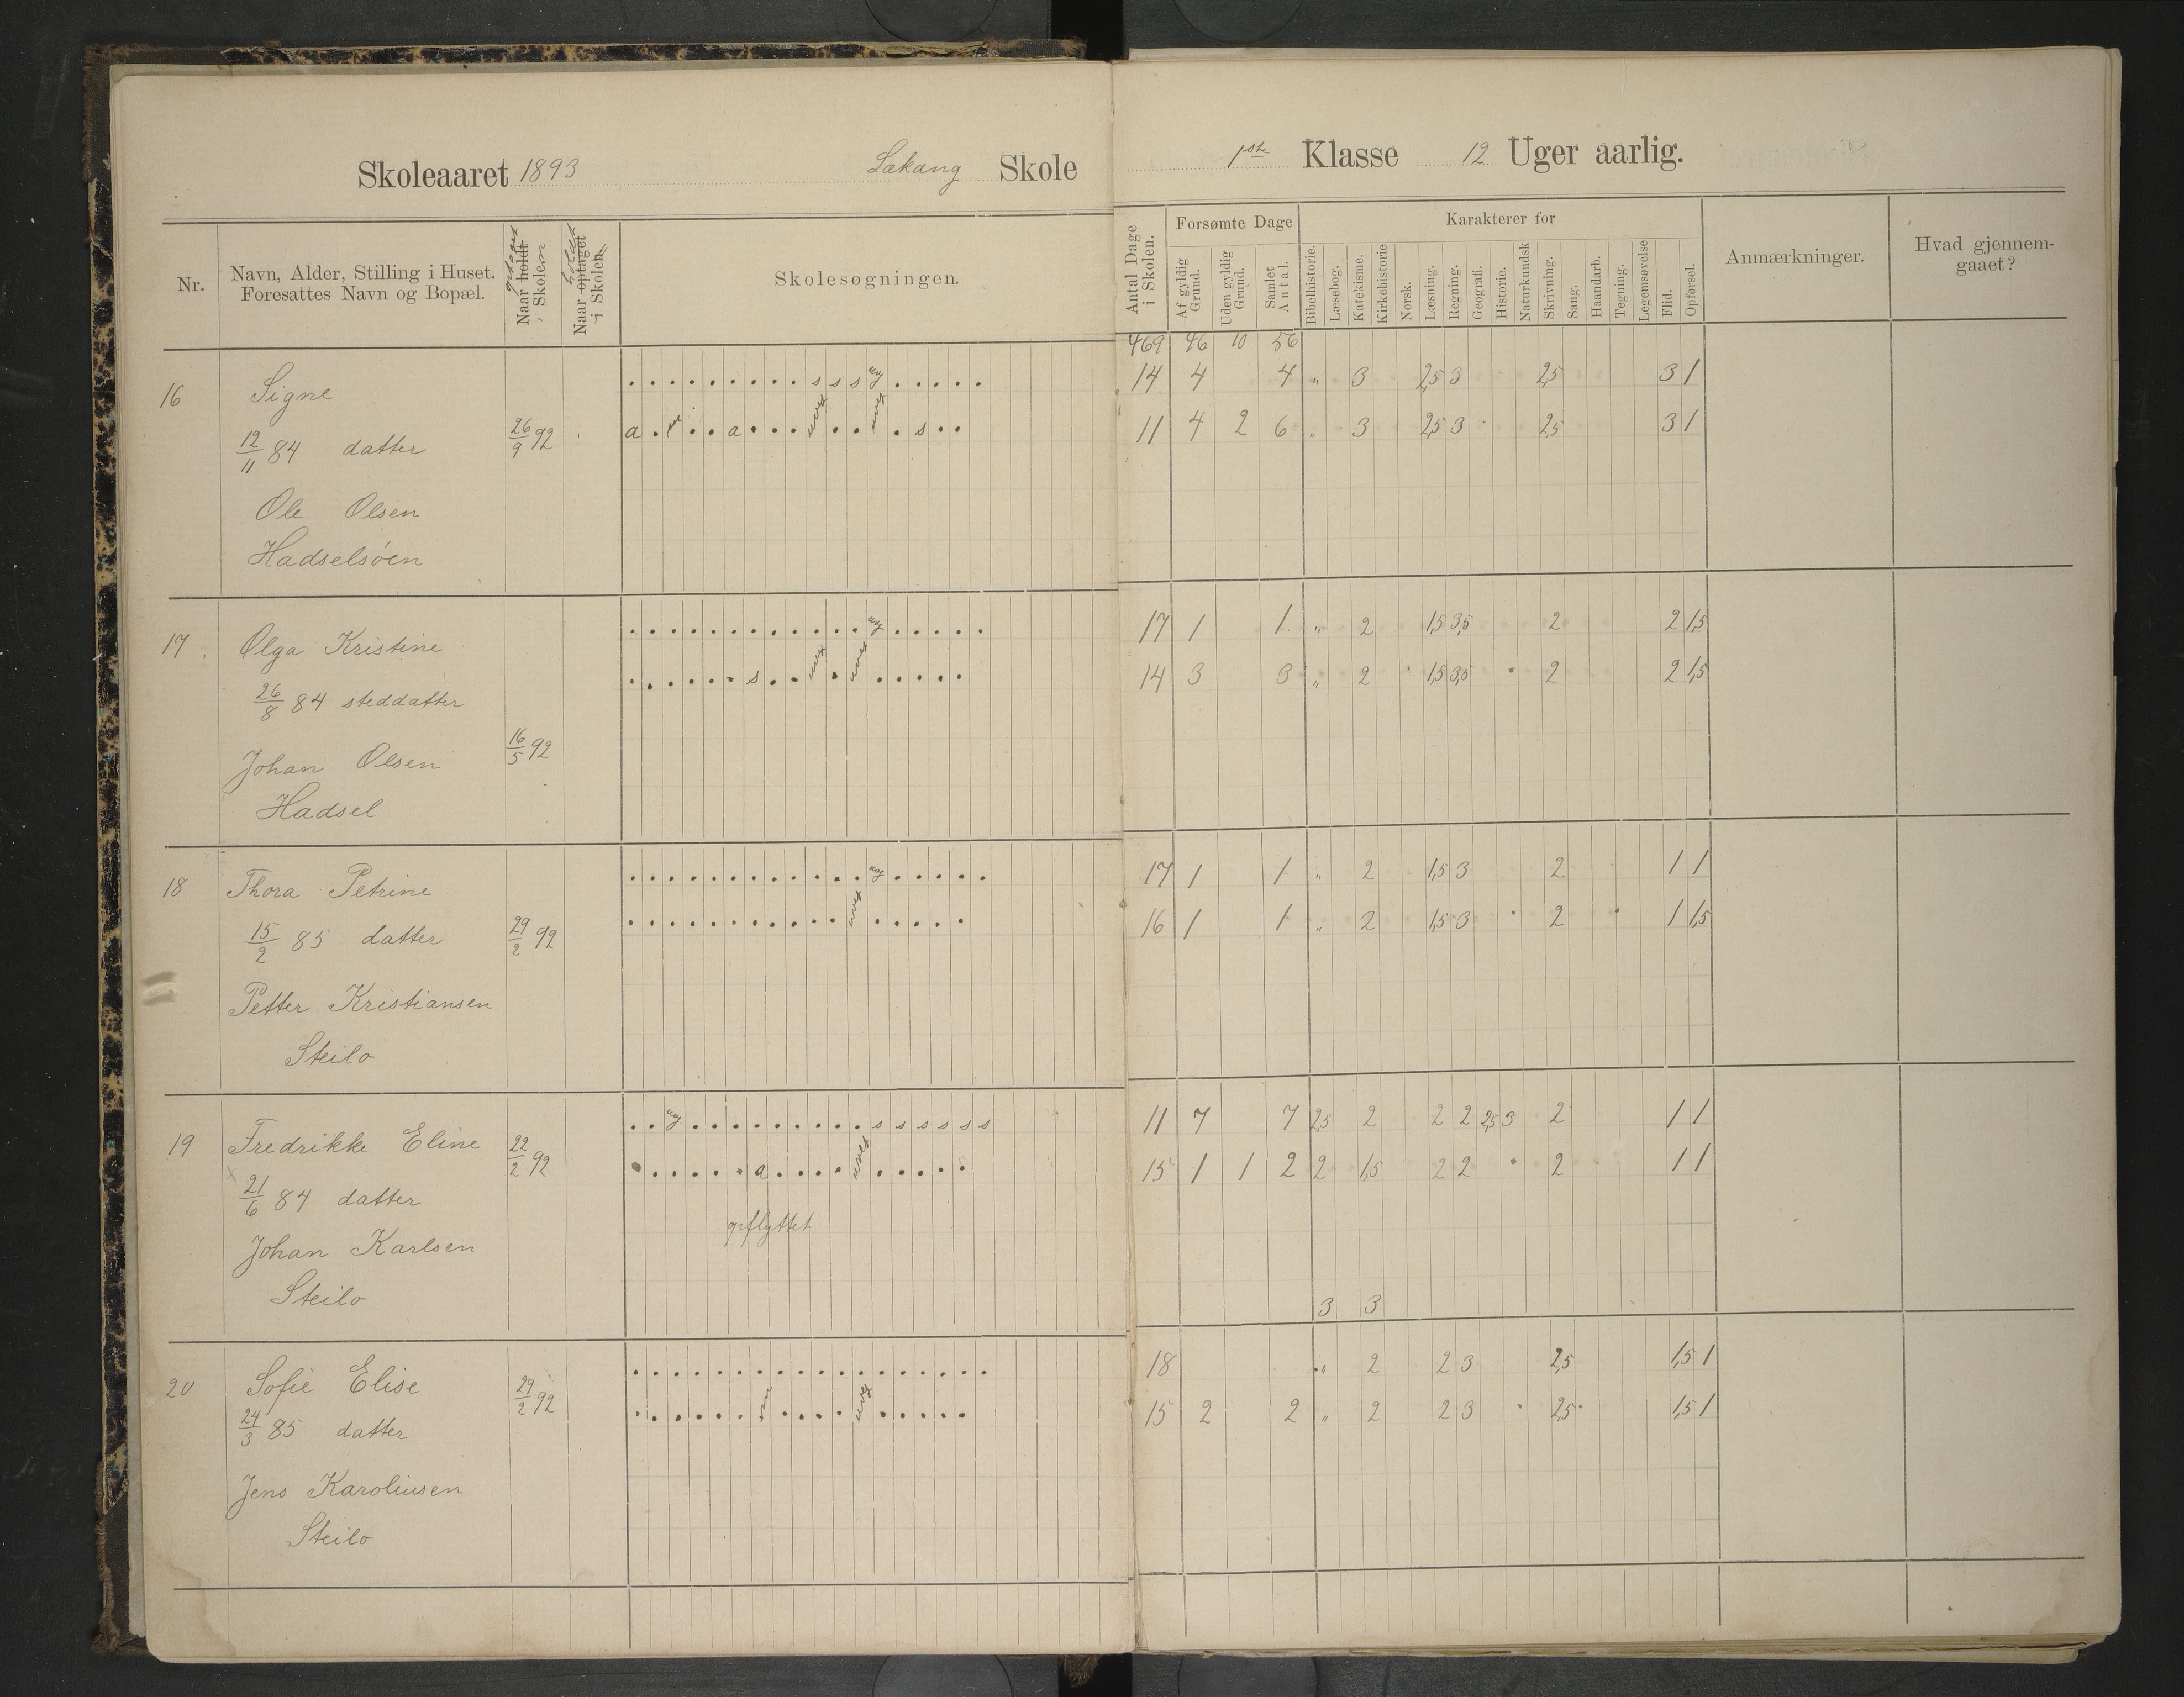 Skoleaaret 1893 Lekang Skole 1ste Klasse 12 Uger aarlig.
Nr. Navn, Alder, Stilling i Huset. Foresattes Navn og Bopæl. Naar holdt i Skolen Naar optaget i Skolen. Skolesøgningen. Antal Dage i Skolen. Forsømte Dage Karakterer for Anmærkninger. Hvad gjennemgaaet?
Af gyldig Grund. Uden gyldig Grund. Samlet Antal. Bibelhistorie. Læsebog. Katekisme. Kirkehistorie Norsk. Læsning. Regning. Geografi. Historie. Naturkundsk Skrivning. Sang. Haandarb. Tegning. Legemsøvelse Flid. Opførsel.
469 46 10 56
16 Signe . . . . . . . . . s s s ug . . . . . 14 4 4 „ 3 2,5 3 2,5 3 1
12/11 84 datter 26/9 92 a . . . a . . . . . . . s . . 11 4 2 6 „ 3 2,5 3 2,5 3 1
Ole Olsen
Hadselsöen
17 Olga Kristine . . . . . . . . . . . . ug . . . . . 17 1 1 „ 2 1,5 3,5 2 2 1,5
26/8 84 steddatter . . . . . . s . . . . . . . . 14 3 3 „ 2 1,5 3,5 2 2 1,5
Johan Olsen 16/5 92
Hadsel
18 Thora Petrine . . . . . . . . . . . . ug . . . . . 17 1 1 „ 2 1,5 3 2 1 1
15/2 85 datter 29/2 92 . . . . . . . . . . . . . . . . 16 1 1 „ 2 1,5 3 2 1 1,5
Petter Kristiansen
Steilo
19 Fredrikke Eline 22/2 92 . . ug . . . . . . . . . s s s s s s 11 7 7 2,5 2 2 2 2,5 3 2 1 1
21/6 84 datter . . . . . . a . . . . . . . . . 15 1 1 2 2 1,5 2 2 2 1 1
opflyttet
Johan Karlsen
Steilo
3 3
20 Sofie Elise 29/2 92 . . . . . . . . . . . . . . . . . . 18 „ 2 2 3 2,5 1,5 1
24/3 85 datter . . . . . . . . . . . . . . . 15 2 2 „ 2 2 3 2,5 1,5 1
Jens Karoliusen
Steilo